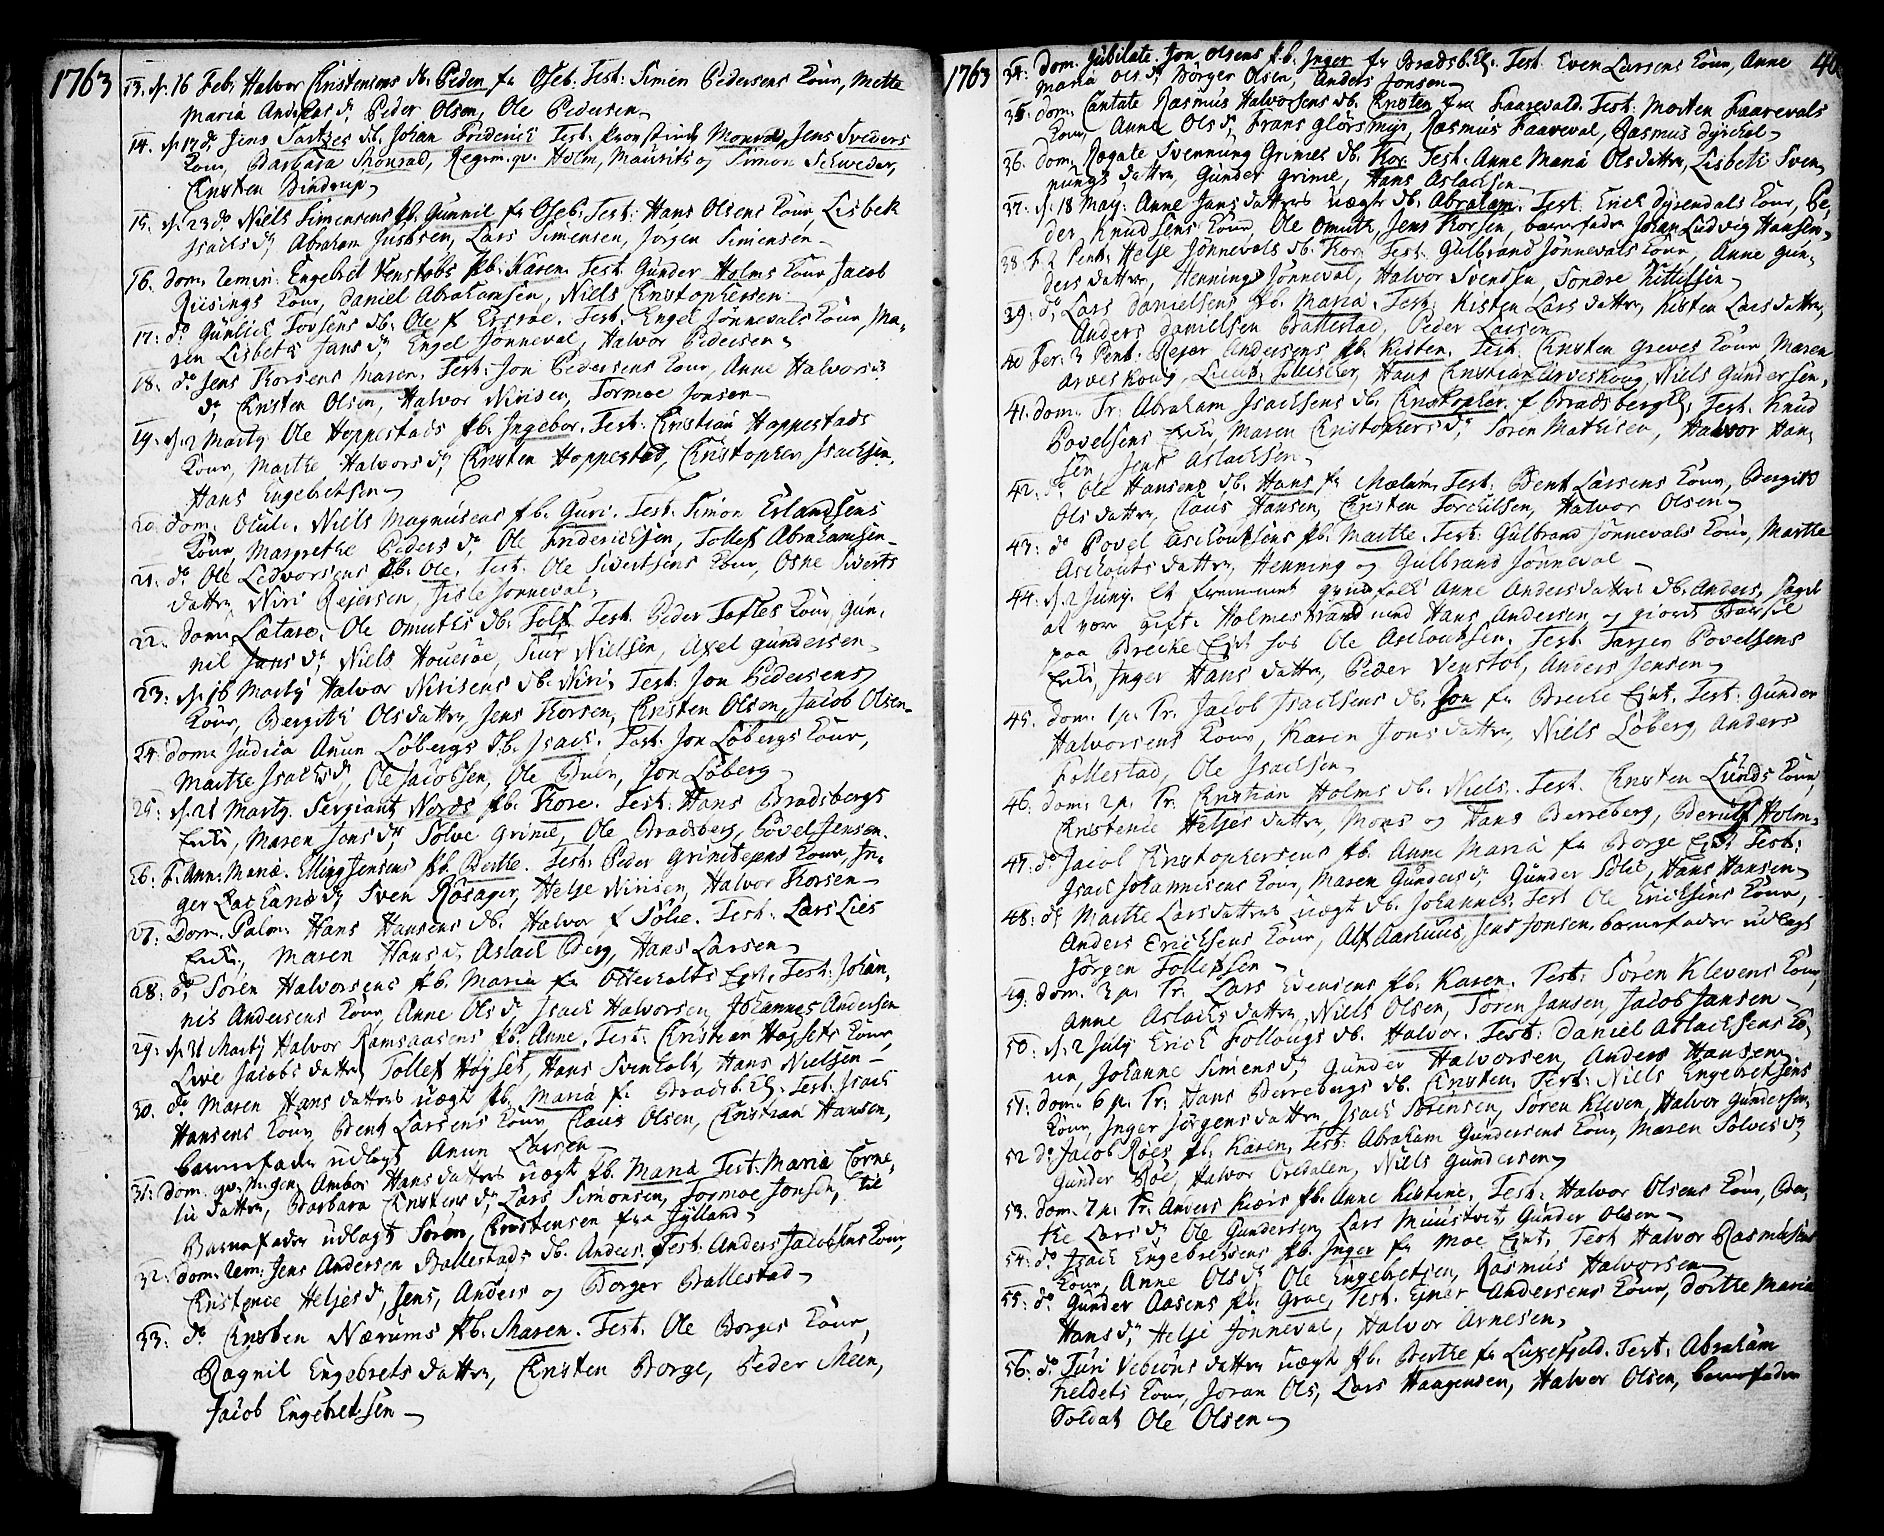 1763
13. d. 16 Feb. Halvor Christensens db. Peder fr Oseb. Test: Simen Pedersens Kone, Mette
Maria Anders dr, Peder Olsen, Ole Pedersen
14. d. 17 do. Jens db. Johan Friderich Test: Monrad, Jens Sveders
Kone, Barbara Monrad, Regim. qv. Holm, Maurits og Simon Schweder,
Christen Bindrup
15. d. 23 do Niels Simensens pb. Gunnil fr Oseb. Test: Hans Olsens Kone, Lisbeth
Isachs dr, Abraham Jusbsen, Lars Simensen, Jørgen Simensen
16. dom. remin: Engebret Venstøbs pb. Karen. Test: Gunder Holms Kone Jacob
Riisings Kone, Daniel Abrahamsen, Niels Christophersen
17. do Gunlich Tovsens db. Ole f. Test: Engel Jønnevals Kone, Ma-
ren Lisbeth Jans dr, Engel Jønneval, Halvor Pedersen
18. do Jens Thorsens Maren. Test: Jon Pedersens Kone, Anne Halvors
dr, Christen Olsen, Halvor Nirisen, Tormoe Jonsen
19. d. 2 Marty Ole Hoppestads pb. Ingebor. Test: Christian Hoppestads
Kone, Marthe Halvors dr, Christen Hoppestad, Christopher Isachsen,
Hans Engebretsen
20. dom. Oculi. Niels Magnusens pb. Guri. Test: Simon Erlandsens
Kone, Margrethe Peders dr, Ole Friderichsen, Tollef Abrahamsen
21. do Ole Ledvorsens pb. Ole. Test: Ole Sivertsens Kone, Osne Siverts
datter, Niri Rejersen, Gisle Jønneval,
22. Dom: Lætare. Ole Omuths db. Tolf Test: Peder Toftes Kone, Gun-
nil Jans dr, Niels Houesøe, Tiur Nielsen, Axel Gundersen
23. d. 16 Marty Halvor Nirisens db. Niri. Test: Jon Pedersens
Kone, Bergithe Olsdatter, Jens Thorsen, Christen Olsen, Jacob Olsen
24. dom: Judica Anun Løbergs db. Isach. Test: Jon Løbergs Kone,
Marthe Isachs dr, Ole Jacobsen, Ole Buer, Jon Løberg
25. d. 21 Marty. Sergiant Nords pb. Thore. Test: Hans Bradsbergs
Enke, Maren Jons dr, Solve Grinie, Ole Bradsberg, Povel Jensen.
26. F. Ann: Mariæ. Elling Jensens pb. Berthe. Test: Peder Kone, In-
ger Zacharie dr, Sven Rosager, Helje Nirisen, Halvor Thorsen
27. Dom. Palm. Hans Hansens db. Halvor f Solie. Test: Lars Lies
Enke, Maren Hans d, Aslach Berg, Hans Larsen
28. do Søren Halvorsens pb. Maria fr Otterholts Ejet. Test: Johan-
nis Andersens Kone, Anne Ols dr, Isach Halvorsen, Johannes Andersen
29. d. 31 Marty Halvor Ramsaasens pb. Anne. Test: Christian Høgsets Kone,
Live Jacobs datter, Tollef Høyset, Hans, Hans Nielsen
30. do Maren Hans datters uægt pb. Maria fr Bradsb. Test: Isach
Hansens Kone, Bent Larsens Kone, Claus Olsen, Christian Hansen,
barnefader udlagt Anun Larsen
31. Dom. Ambor Hans datters uægt pb. Maria Test: Maria Corne-
lii datter, Barbara Christens dr, Lars Simonsen, Tormoe Jonsen, til
Barnefader udlagt Søren Christensen fra Jylland
32. dom. 2 em: Jens Andersen Ballestads db. Anders. Test: Anders Jacobsens Kone,
Christence Heljes dr, Jens, Anders og Borger Ballestad
33. do Christen Nærums pb. Maren. Test. Ole Borges Kone,
Ragnil Engebrets datter, Christen Borge, Peder Meen,
Jacob Engebretsen
1763
40
34. dom. Jubilate. Jon Olsens pb. Inger fr Bradsb. Ej. Test. Even Larsens Kone, Anne
Maria Ols dr Børger Olsen, Anders Jonsen
35. dom. Cantate Rasmus Halvorsens db. Christen fra Faareval. Test: Morten Faarevals
Kone, Anne Ols dr, Frans Glørsmyr, Rasmus Faareval, Rasmus Dyrkol
36. dom. Rogate Svennung Grinies db. Thor Test: Anne Maria Olsdatter, Lisbeth Sven-
nungs datter, Gunder Grinie, Hans Aslachsen
37. d. 18 May: Anne Jans datters uægte db. Abraham. Test. Erich Dyrendals Kone, Pe-
der Knudsens Kone, Ole Omuth, Jens Thorsen, barnefader Johan Ludvig Hansen
38. f. 2 Pent. Helje Jønnevals db. Thor Test: Gulbrand Jønnevals Kone, Anne Gun-
ders datter, Henning Jønneval, Halvor Svendsen, Sondre Kittilsen
39. do Lars Danielsens pb. Maria. Test: Kisten Lars datter, Kisten Larsdatter,
Anders Danielsen Ballestad, Peder Larsen
40 Fer. 3 Pent. Rejer Andersens pb. Kisten. Test. Christen Greves Kone Maren
Arveskoug, Lieut., Hans Christian Arveskoug, Niels Gundersen,
41. dom. Tr. Abraham Isachsens db. Christopher f Bradsberg Ej. Test. Knud
Povelsens Enke, Maren Christophers dr, Søren Mathisen, Halvor Han-
sen, Jens Aslachsen
42. do Ole Hansens db. Hans fr Mælum Test: Bent Larsens Kone, Bergite
Ols datter, Claus Hansen, Christen Torchilsen, Halvor Olsen
43. do Povel Aschoutsens pb. Marthe. Test: Gulbrand Jønnevals Kone, Marthe
Aschouts datter, Henning og Gulbrand Jønneval
44. d. 2 Juny. Et fremmet qvindfolk Anne Anders datter db. Anders, sagde
at være gift i Holmestrand med Hans Andersen og giorde Barsel
paa Brecke Ejet hos Ole Aschoutsen. Test. Tarjer Povelsens
Enke, Inger Hans datter, Peder Venstøb, Anders Jensen
45. dom. 1 p. Tr. Jacob Isachsens db. Jon fr Brecke Ejet. Test: Gunder
Halvorsens Kone, Karen Jons datter, Niels Løberg, Anders
Follestad, Ole Isachsen
46. dom. 2 p. Tr. Christian Holms db. Niels. Test. Christen Lunds Kone,
Christence Heljes datter, Mons og Hans Berreberg, Berulf Holm
47. do Jacob Christophersens pb. Anne Maria fr Borge Ejet Test:
Isach Johannesens Kone, Maren Gunders dr, Gunder Solie, Hans Hansen
48. do Marthe Larsdatters uægt db. Johannes. Test Ole Erichsens Kone,
Anders Erichsens Kone, Alf Aarhuus, Jens Jonsen, barnefader udlagt
Jørgen Tollefsen
49. dom. 3 p. Tr. Lars Edensens pb. Karen. Test: Søren Klevens Kone,
Anne Aslachs datter, Niels Olsen, Søren Jansen, Jacob Jansen
50. d. 2 July Erich Follougs db. Halvor. Test: Daniel Aslachsens Ko-
ne, Johanne Simens dr, Gunder Halvorsen, Anders Hansen
51. dom. 6 p. Tr. Hans Berrebergs db. Christen. Test: Niels Engebretsens
Kone, Inger Jørgensdatter, Isach Sørensen, Søren Kleven, Halvor Gundersen,
52 do Jacob Røes pb. Karen, Test: Abraham Gundersens Kone, Maren Solves dr,
Gunder Røe, Halvor, Niels Gundersen
53. dom. 7 p. Tr. Anders Kiærs pb. Anne Kistine, Test: Halvor Olsens Kone, Ber-
the Lars dr Ole Gundersen, Lars Muustvet, Gunder Olsen
54. do Isach Engebretsens pb. Inger fr Moe Ejet, Test Halvor Rasmusens
Kone, Anne Ols dr Ole Engebretsen, Rasmus Halvorsen
55. do Gunder Aasens pb. Groe, Test. Ejner Andersens Kone, Dorthe Maria
Hans dr, Helje Jønneval, Halvor Arnesen,
56. do Turi Vebiøns datters uægt pb. Berthe fr Luxefjeld. Test. Abraham
Fieldets Kone, Joran Ols, Lars Haagensen, Halvor Olsen, barnefader
Soldat Ole Olsen